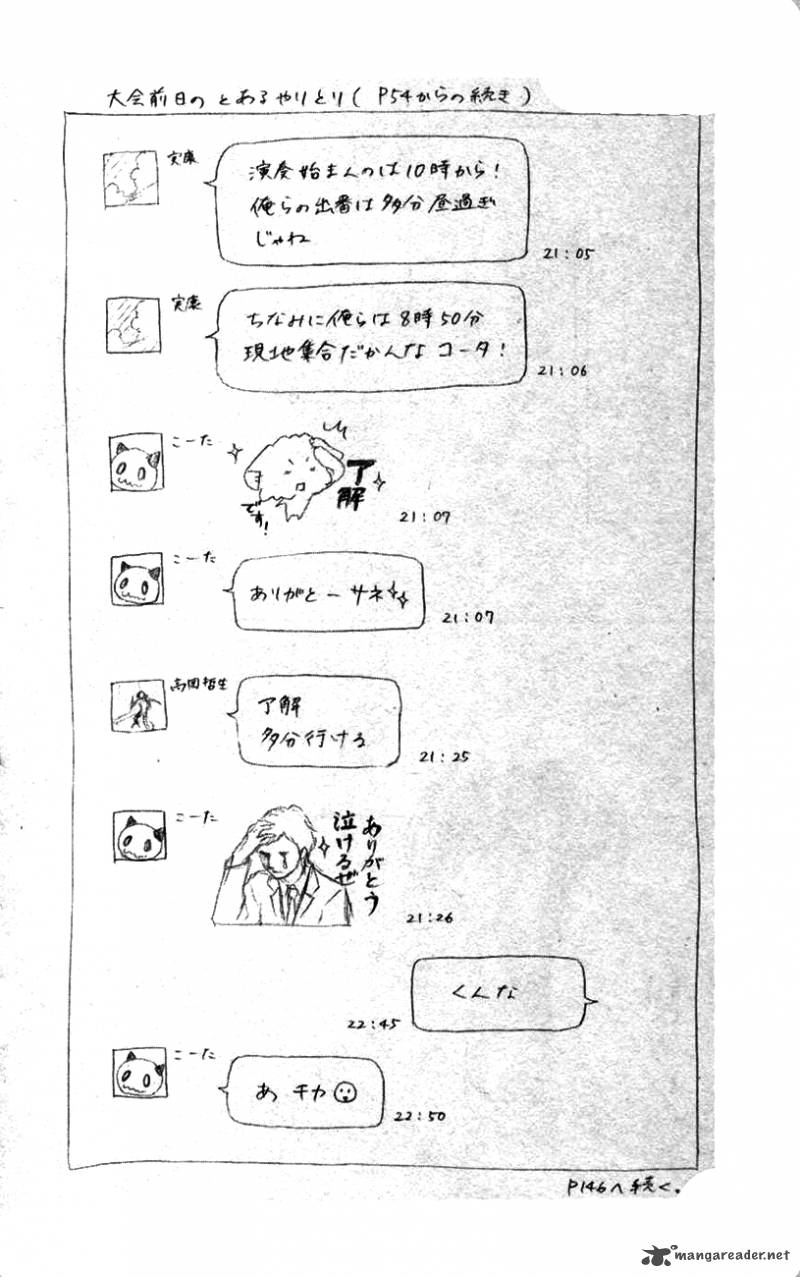 大会前日の とあるやりとり( P54からの続き )
実康
演奏始まんのは10時から!
俺らの出番は多分昼過ぎ
じゃね
21:05
実康
ちなみに俺らは8時50分
現地集合だかんな コータ!
21:06
こーた
了解
です!
21:07
こーた
ありがとー サネ
21:07
高岡哲生
了解
多分行ける
21:25
こーた
ありがとう
泣けるぜ
21:26
くんな
22:45
こーた
あ チカ
22:50
P146へ続く。
mangareader.net